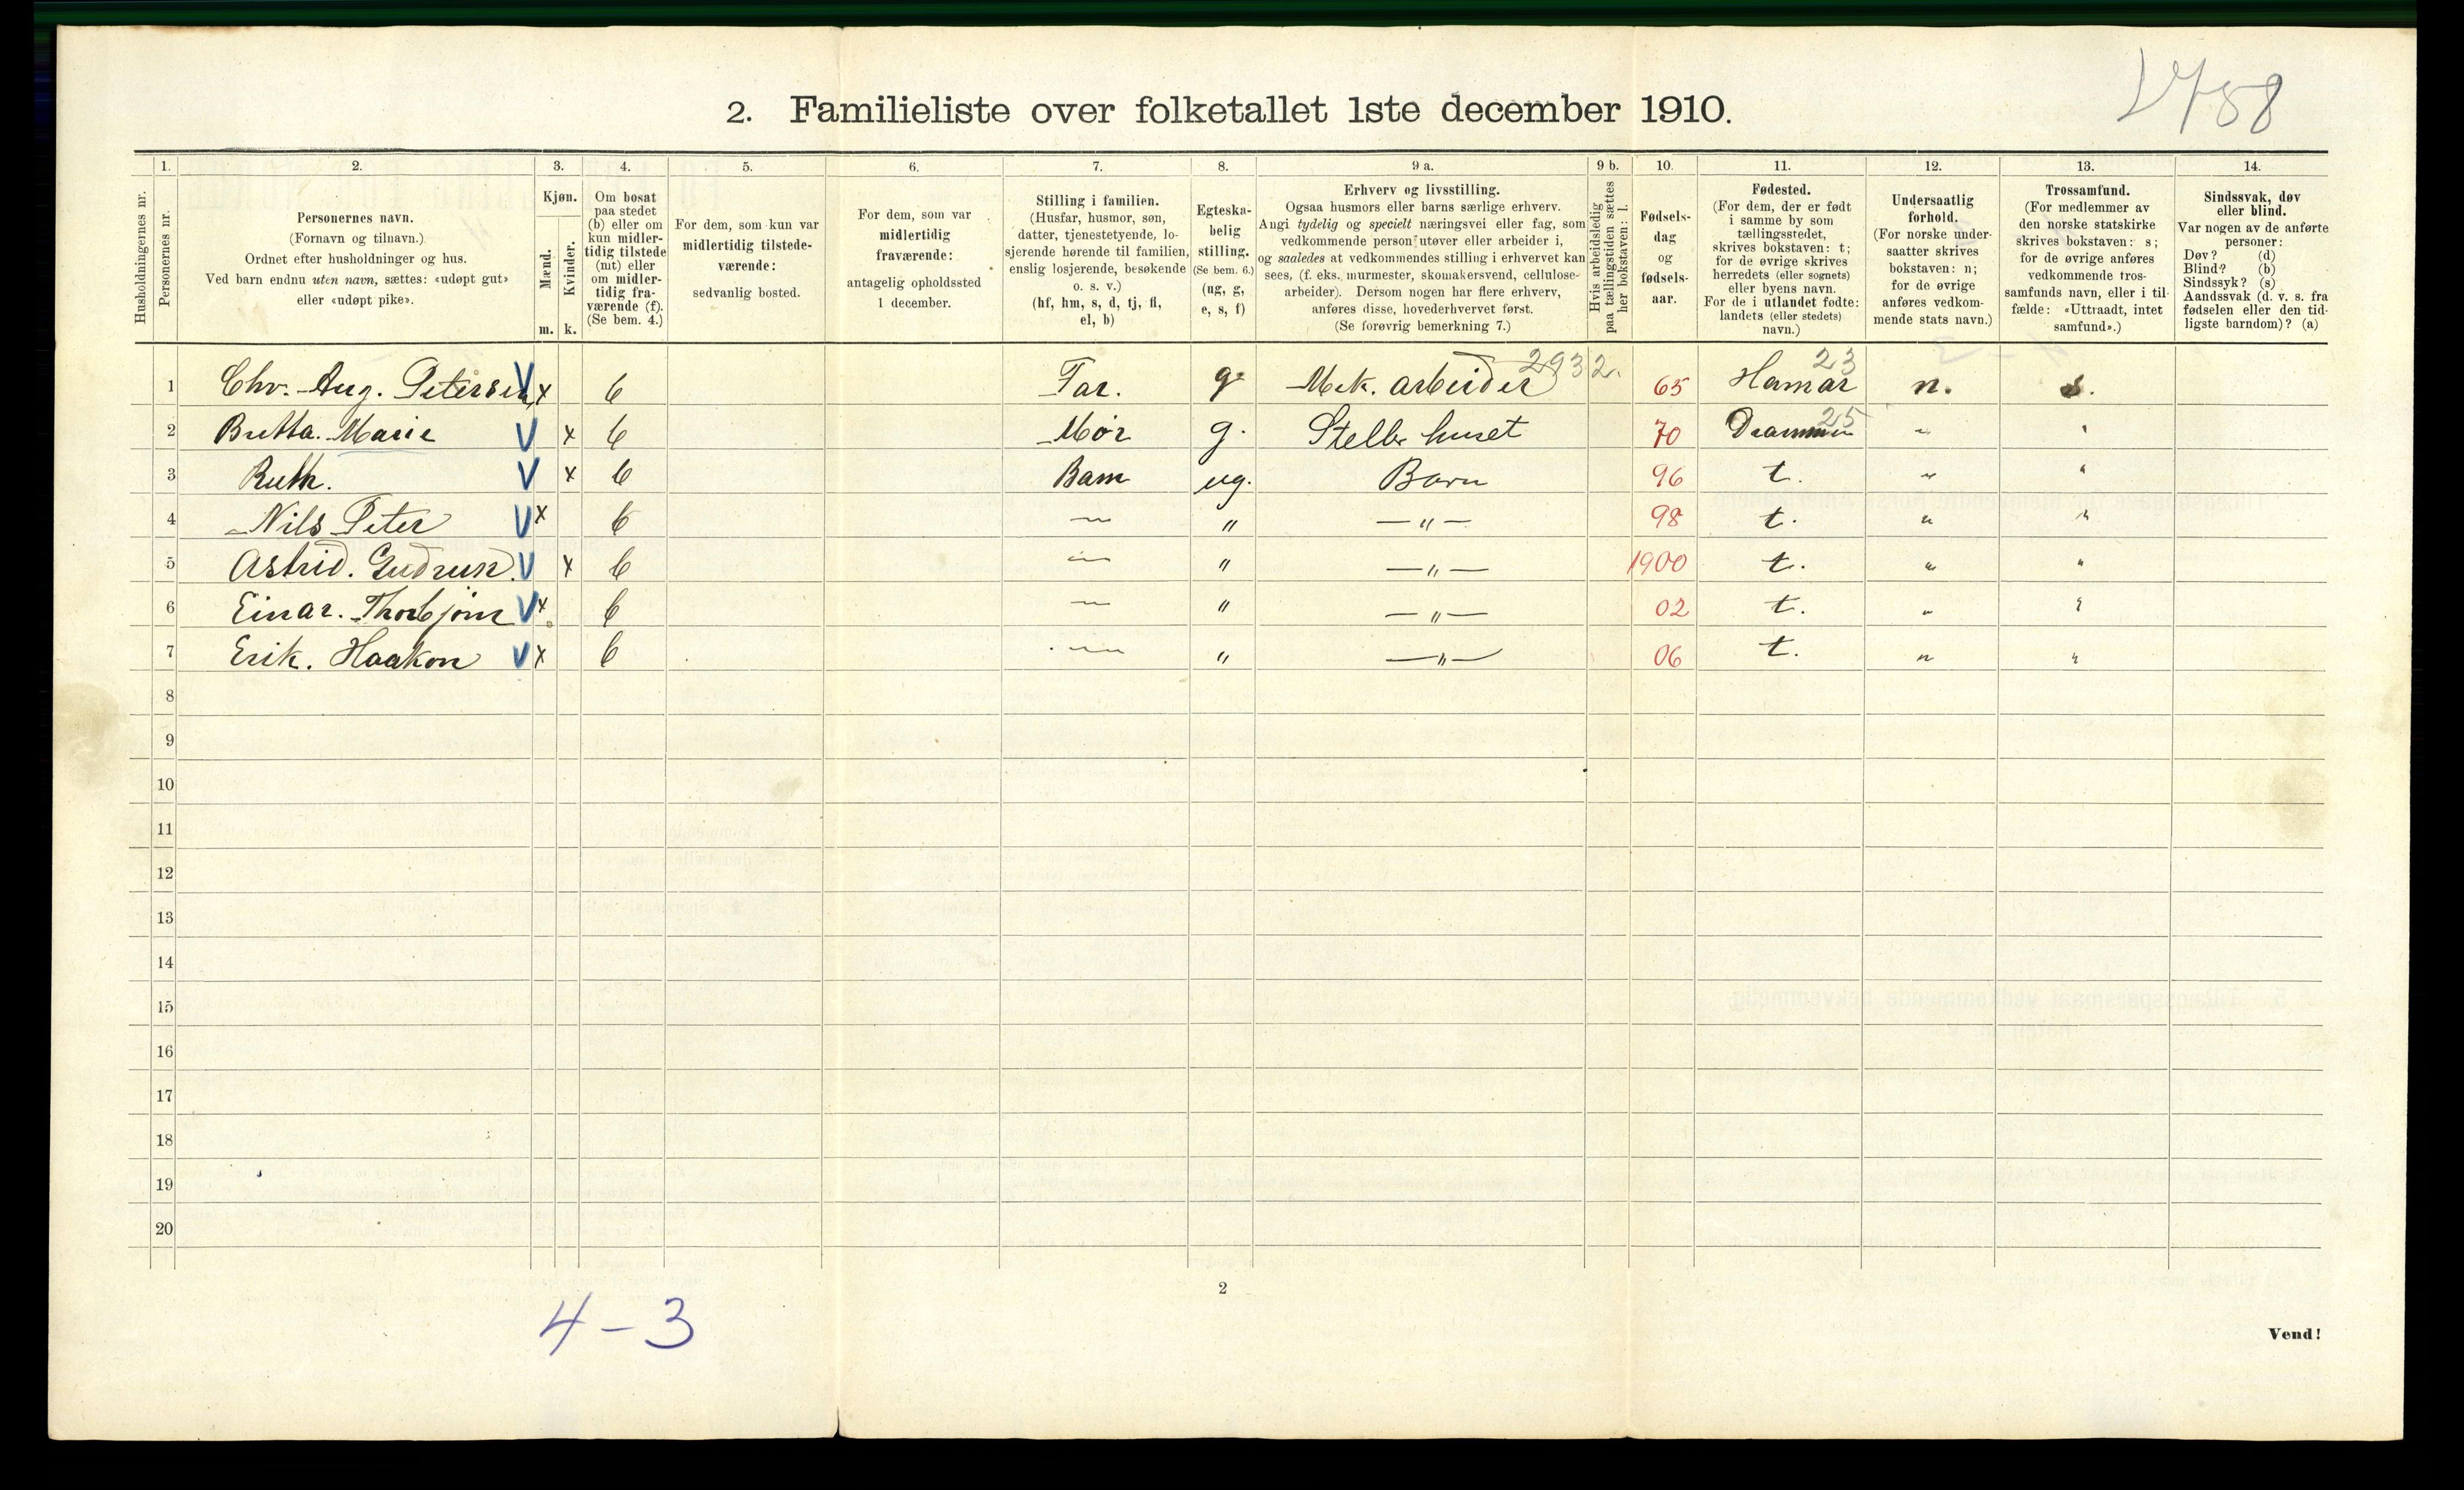 2788
2. Familieliste over folketallet 1ste december 1910.
Husholdningernes nr.
1. Personernes nr.
2. Personernes navn.
(Fornavn og tilnavn.)
Ordnet efter husholdninger og hus.
Ved barn endnu uten navn, sættes: «udøpt gut»
eller «udøpt pike».
3. Kjøn.
Mænd. m.
Kvinder. k.
4. Om bosat
paa stedet
(b) eller om
kun midler-
tidig tilstede
(mt) eller
om midler-
tidig fra-
værende (f).
(Se bem. 4.)
5. For dem, som kun var
midlertidig tilstede-
værende:
sedvanlig bosted.
6. For dem, som var
midlertidig
fraværende:
antagelig opholdssted
1 december.
7. Stilling i familien.
(Husfar, husmor, søn,
datter, tjenestetyende, lo-
sjerende hørende til familien,
enslig losjerende, besøkende
o. s. v.)
(hf, hm, s, d, tj, fl,
el, b)
8. Egteska-
belig
stilling.
(Se bem. 6.)
(ug, g,
e, s, f)
9 a. Erhverv og livsstilling.
Ogsaa husmors eller barns særlige erhverv.
Angi tydelig og specielt næringsvei eller fag, som
vedkommende person utøver eller arbeider i,
og saaledes at vedkommendes stilling i erhvervet kan
sees, (f. eks. murmester, skomakersvend, cellulose-
arbeider). Dersom nogen har flere erhverv,
anføres disse, hovederhvervet først.
(Se forøvrig bemerkning 7.)
9 b. Hvis arbeidsledig
paa tællingstiden sættes
her bokstaven: l.
10. Fødsels-
dag
og
fødsels-
aar.
11. Fødested.
(For dem, der er født
i samme by som
tællingsstedet,
skrives bokstaven: t;
for de øvrige skrives
herredets (eller sognets)
eller byens navn.
For de i utlandet fødte:
landets (eller stedets)
navn.)
12. Undersaatlig
forhold.
(For norske under-
saatter skrives
bokstaven: n;
for de øvrige
anføres vedkom-
mende stats navn.)
13. Trossamfund.
(For medlemmer av
den norske statskirke
skrives bokstaven: s;
for de øvrige anføres
vedkommende tros-
samfunds navn, eller i til-
fælde: «Uttraadt, intet
samfund».)
14. Sindssvak, døv
eller blind.
Var nogen av de anførte
personer:
Døv? (d)
Blind? (b)
Sindssyk? (s)
Aandssvak (d. v. s. fra
fødselen eller den tid-
ligste barndom)? (a)
1 Chr. Aug. Petersen V x b Far. g. Mek. arbeider 2932. 65 Hamar 23 n. s.
2 Britta. Marie V x b Mor g. Steller huset 70 Drammen 25 " "
3 Ruth. V x b Barn ug. Barn 96 t. " "
4 Nils Peter V x b — " — " — 98 t. " "
5 Astrid. Gudrun. V x b — " — " — 1900 t. " "
6 Einar. Thorbjørn V x b — " — " — 02 t. " "
7 Erik. Haakon V x b — " — " — 06 t. " "
8
9
10
11
12
13
14
15
16
17
18
19
20
2
4 – 3
Vend!